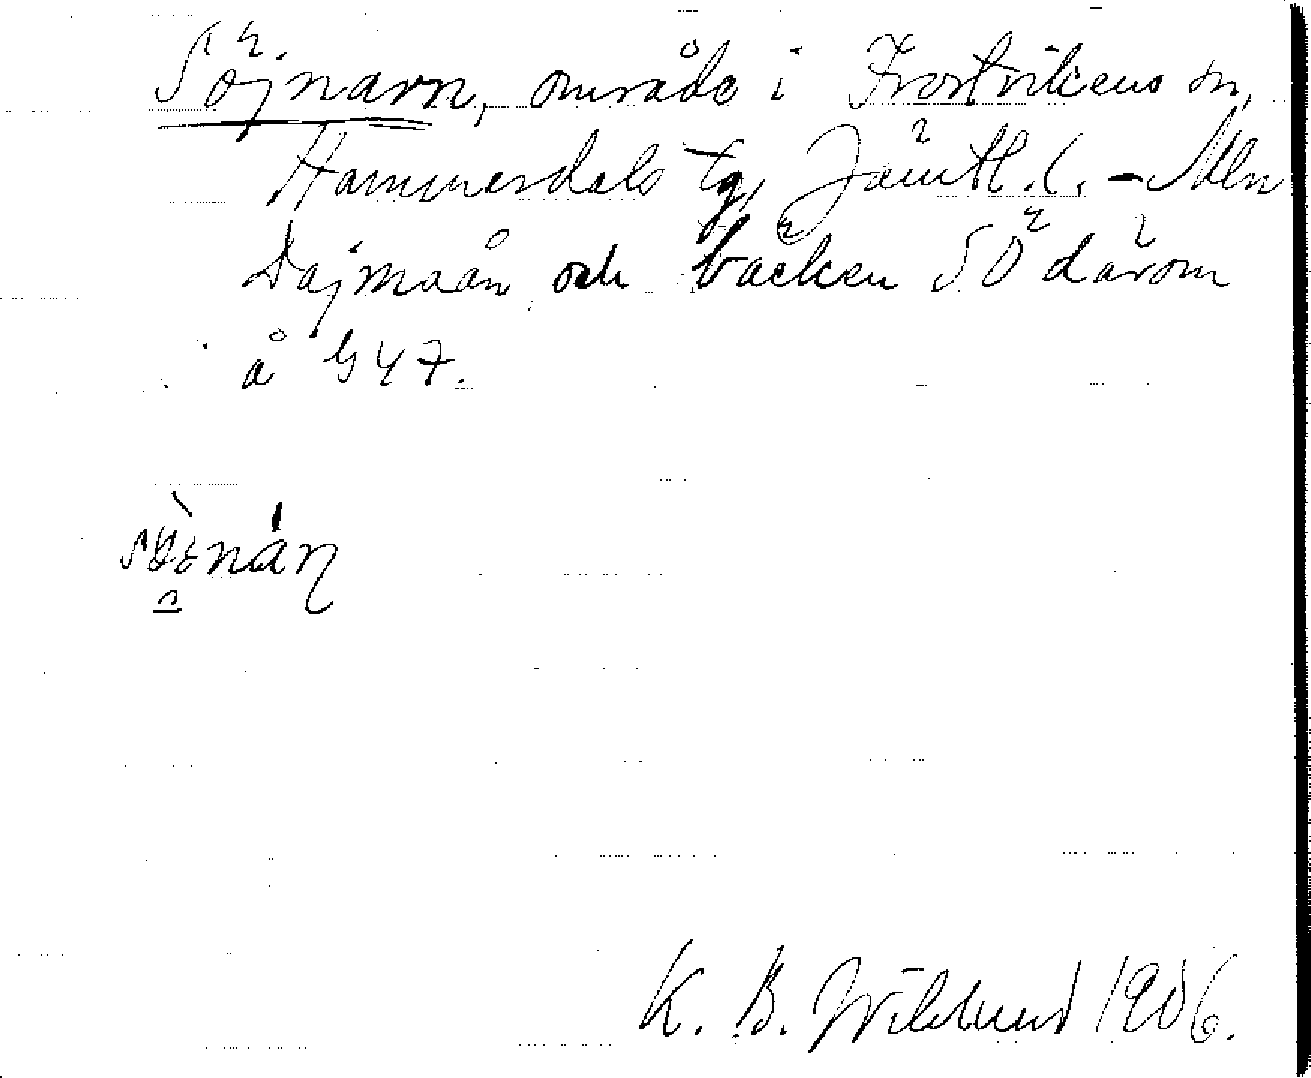 Söjnarn, område i Frostvikens sn,
Hammerdals tg, Jämtl. l. - Mln
Dajmaån och bäcken SO därom
å G 47.
K. B. Wiklund 1906.